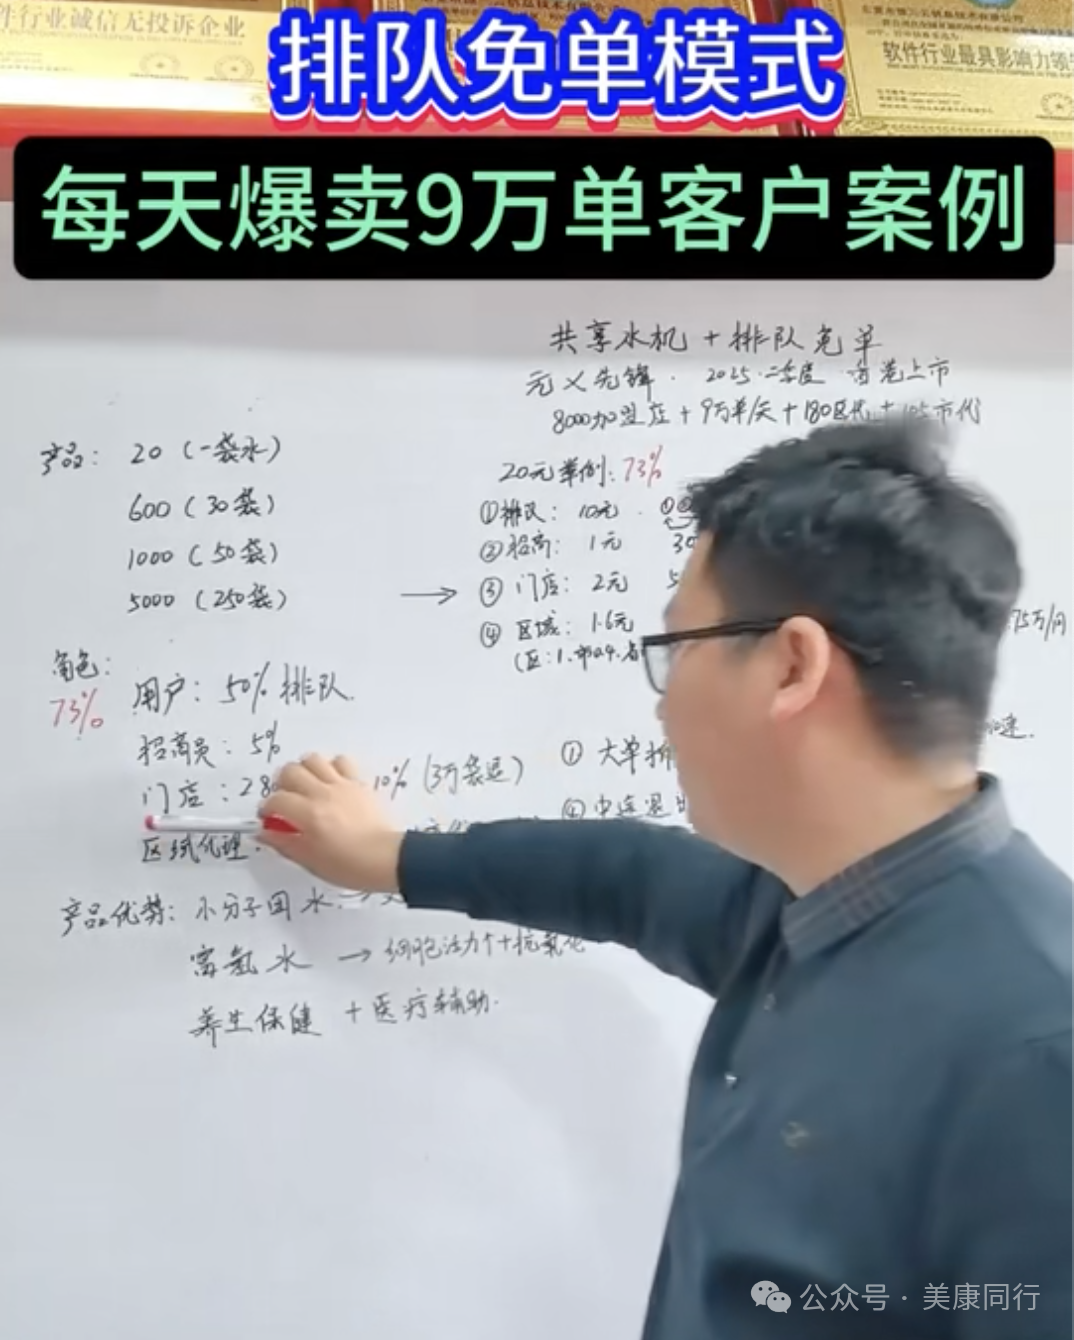 件行业诚信无投诉企业
软件行业最具影响力领
排队免单模式
每天爆卖9万单客户案例
共享水机 + 排队免单
元乂先锋 . 2025.二季度 香港上市
8000加盟店 + 9万单/天 + 180区代 + 105市代
产品: 20 (一袋水)
600 (30袋)
1000 (50袋)
5000 (250袋)
20元举例: 73%
①排队: 10元 . ①②
②招商: 1元 30
→ ③ 门店: 2元 5
④ 区域: 1.6元
(区:1.市0.4.省
75万/月
角色:
73%
用户: 50% 排队.
招商员: 5%
门店: 280 10% (3万袋返)
区域代理:
① 大单排
速.
④ 中途退出
产品优势: 小分子团水 →
富氢水 → 细胞活力↑+抗氧化
养生保健 + 医疗辅助.
公众号 · 美康同行